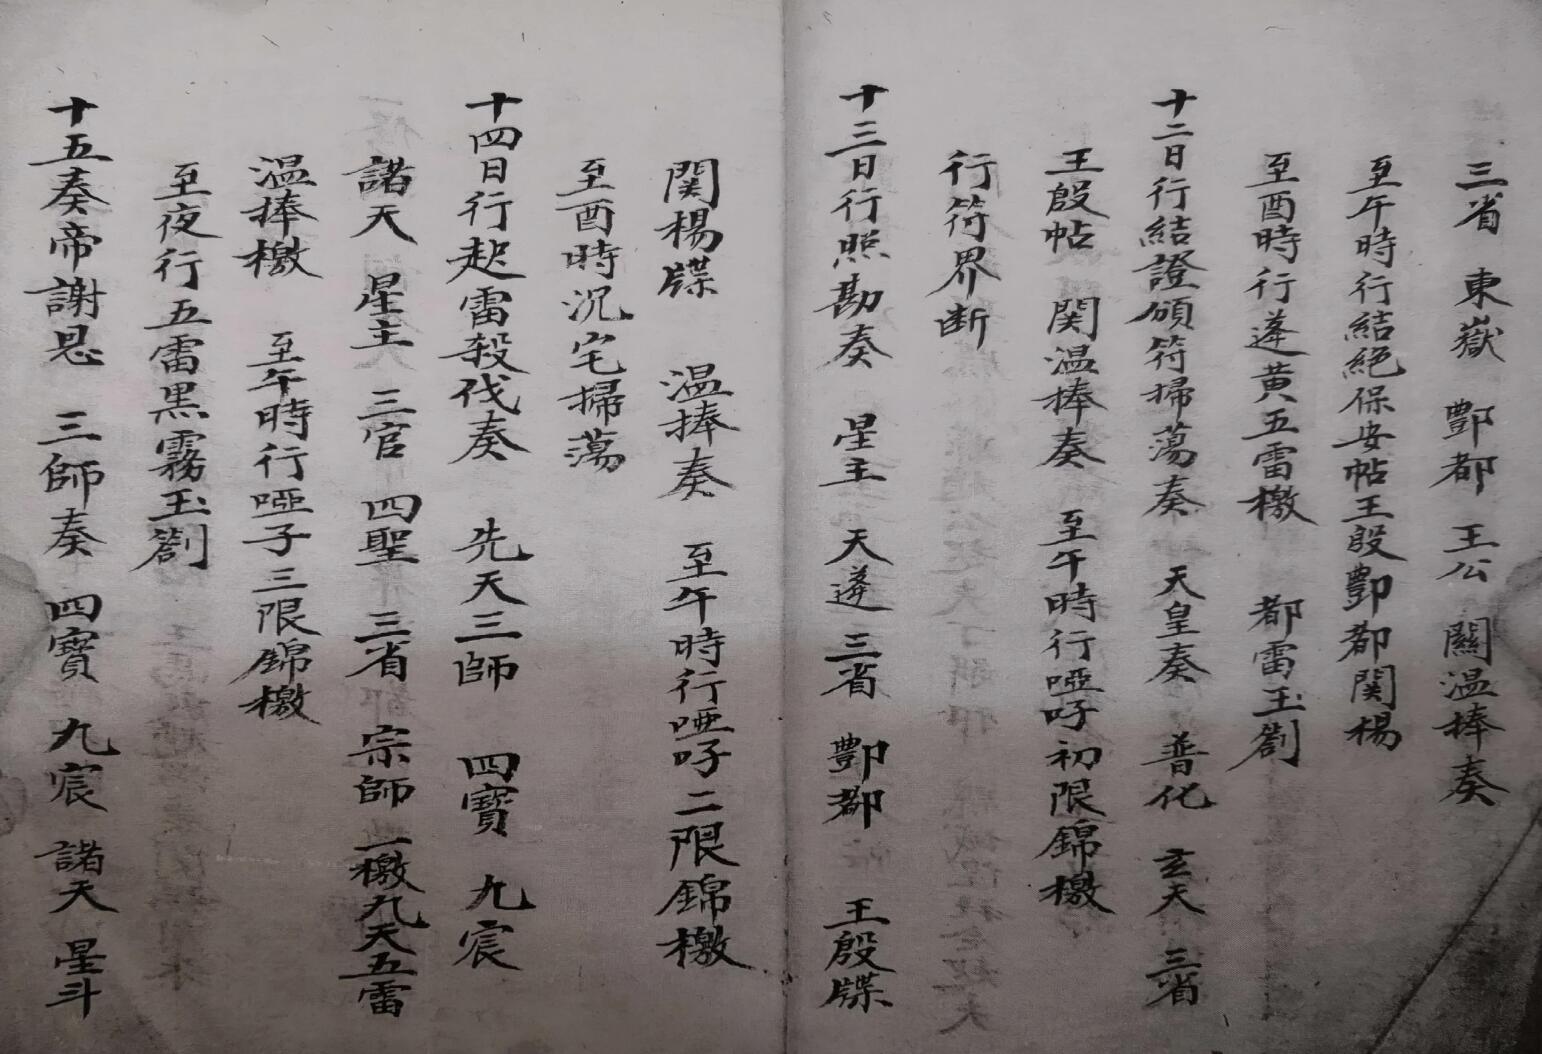 三省 東嶽 酆都 王公 關溫捧奏
至午時行結絕保安帖王殷酆都関楊
至酉時行遣黄五雷檄 都雷玉劄
十二日行結證頒符掃蕩奏 天皇奏 普化 玄天 三省
王殷帖 関溫捧奏 至午時行啞吁初限錦檄
行符界断
十三日行照勘奏 星主 天遊 三省 酆都 王殷牒
関楊牒 溫捧奏 至午時行啞吁二限錦檄
至酉時沉宅掃蕩
十四日行起雷殺伐奏 先天三師 四寶 九宸
諸天 星主 三官 四聖 三省 宗師 一檄九天五雷
溫捧檄 至午時行啞子三限錦檄
至夜行五雷黒霧玉劄
十五奏帝謝恩 三師奏 四寶 九宸 諸天 星斗